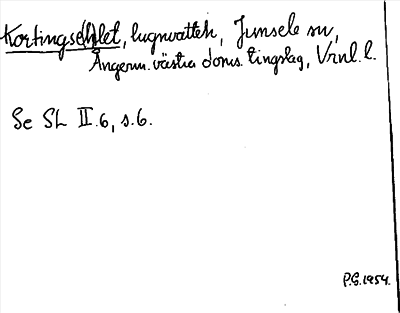 Kortingselet, lugnvatten, Junsele sn,
Ångerm. västra doms. tingslag, Vrnl. l.
Se SL II.6, s.6.
P.G. 1954.